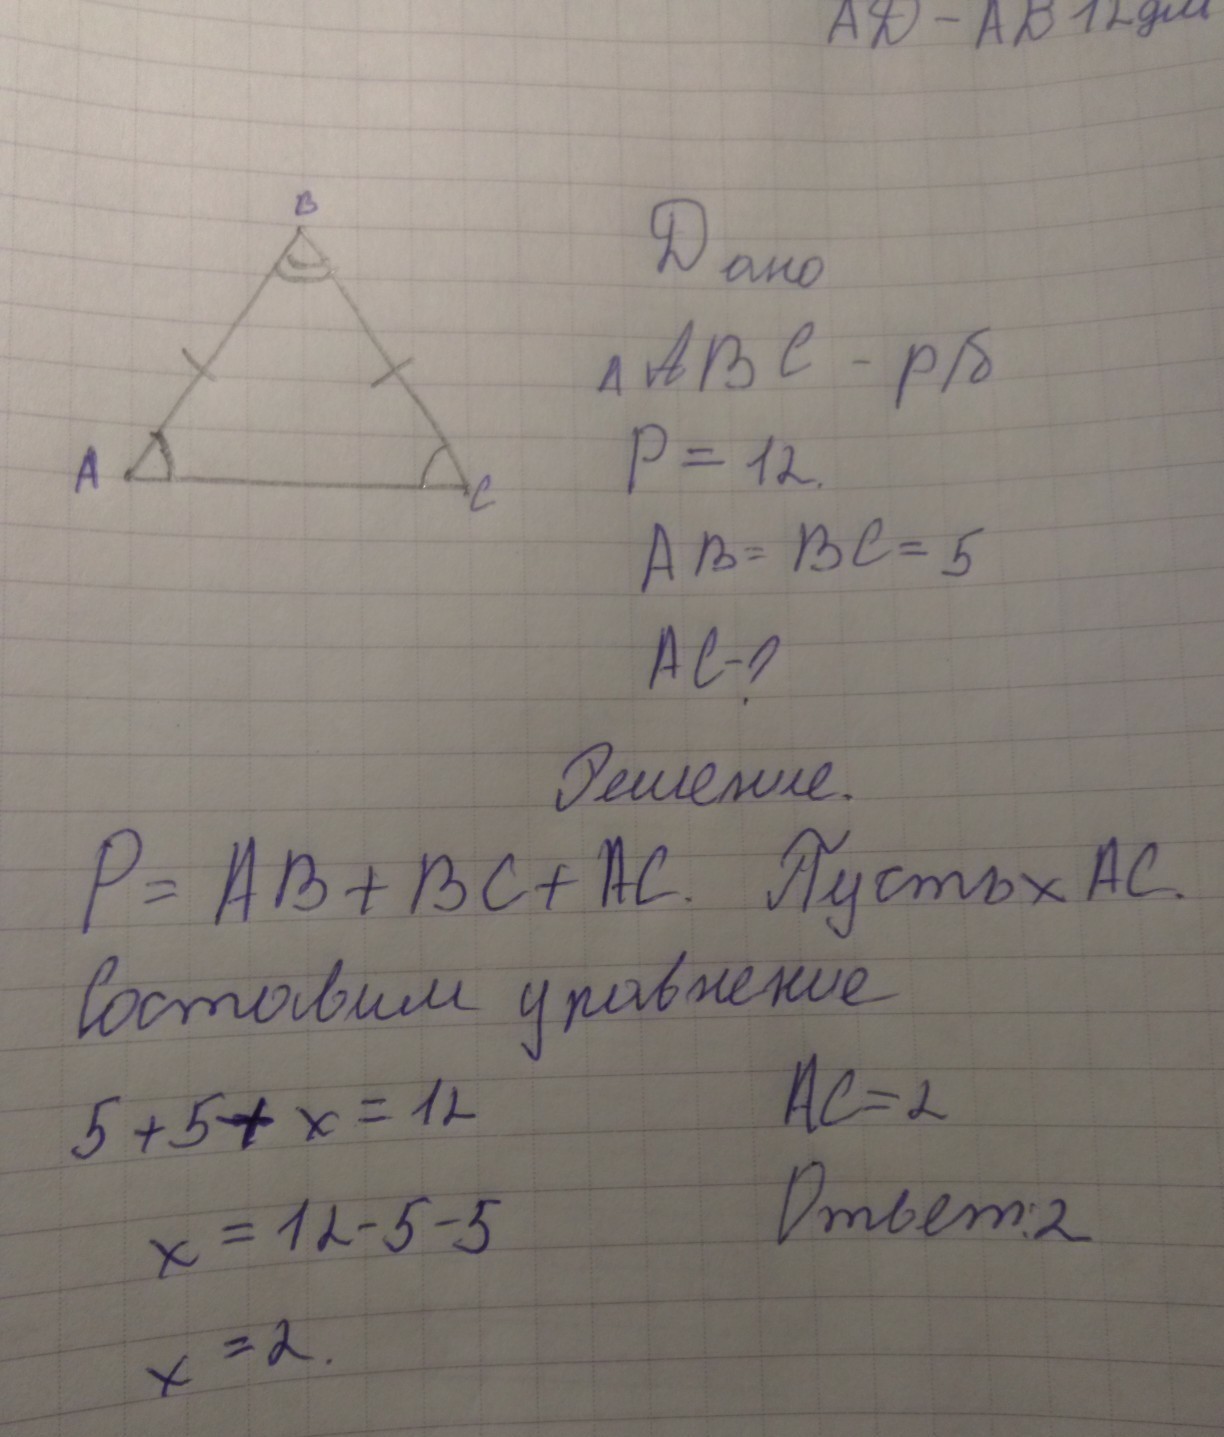 AD - AB 12дм
B
A
C
Дано
△ABC - р/б
P = 12.
AB = BC = 5
AC - ?
Решение.
P = AB + BC + AC. Пусть x AC.
Составим уравнение
5 + 5 + x = 12
x = 12 - 5 - 5
x = 2.
AC = 2
Ответ: 2